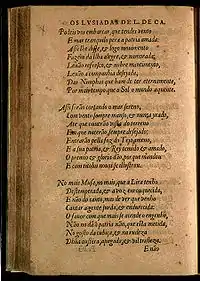 OS LVSIADAS DE L. DE CA.
Podeis vos embarcar, que tendes vento
E mar tranquilo pera a patria amada:
Assi lhe disse, & logo mouimento
Fazem da ilha alegre, & namorada:
Leuão refresco, & nobre mantimento,
Leuão a companhia desejada,
Das Nimphas que hão de ter eternamente,
Por mais tempo que o Sol o mundo aquente.
Assi forão cortando o mar sereno,
Com vento sempre manso, & nunca yrado,
Ate que ouuerão vista do terreno
Em que naçerão sempre desejado:
Entrarão pela foz do Tejo ameno,
E a sua patria, & Rey temido & amado,
O premio & gloria dão, por que mandou
E com titulos nouos se illustrou.
No mais Musa, no mais, que a Lira tenho
Destemperada, & a voz enrouquecida,
E não do canto, mas de ver que venho
Cantar a gente surda, & endurecida:
O fauor com que mais se acende o engenho,
Não no dá a patria não, que está metida,
No gosto da cubiça, & na rudeza
Dhũa austera, apagada, & vil tristeza.
E não